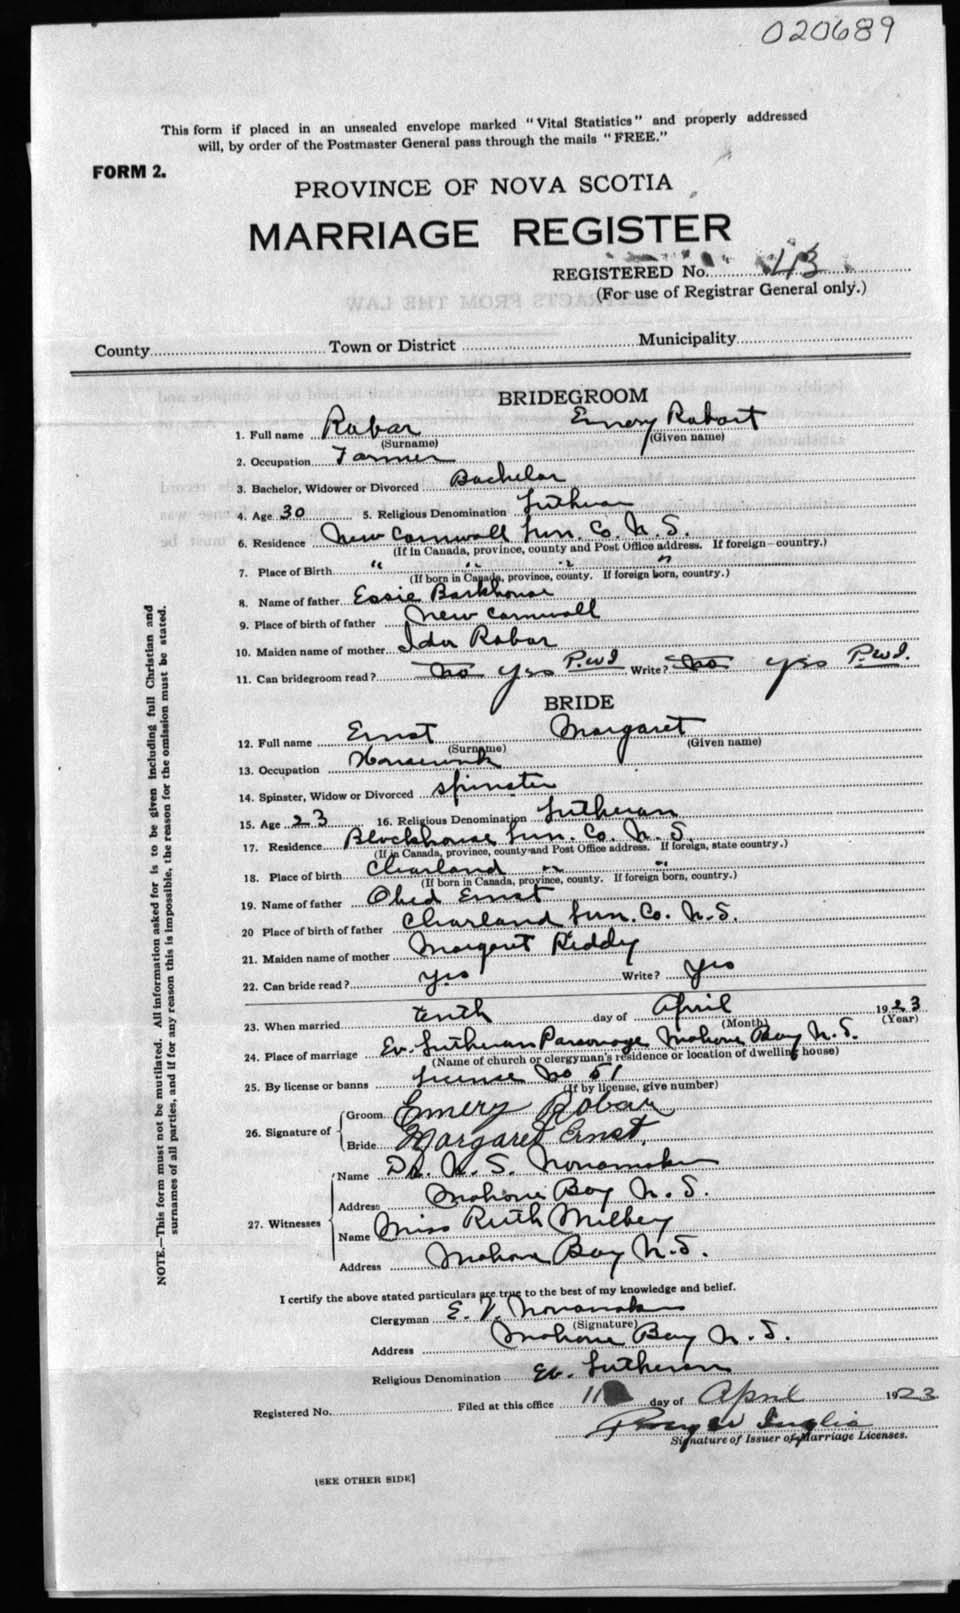 020689
This form if placed in an unsealed envelope marked "Vital Statistics" and properly addressed
will, by order of the Postmaster General pass through the mails "FREE."
FORM 2.
PROVINCE OF NOVA SCOTIA
MARRIAGE REGISTER
REGISTERED No. 413
(For use of Registrar General only.)
County Town or District Municipality
BRIDEGROOM
1. Full name Robar Emery Robart
(Surname) (Given name)
2. Occupation Farmer
3. Bachelor, Widower or Divorced Bachelor
4. Age 30 5. Religious Denomination Lutheran
6. Residence New Cornwall Lun. Co. N.S.
(If in Canada, province, county and Post Office address. If foreign—country.)
7. Place of Birth " " " "
(If born in Canada, province, county. If foreign born, country.)
8. Name of father Essie Barkhouse
9. Place of birth of father New Cornwall
10. Maiden name of mother Ida Robar
11. Can bridegroom read? No Yes P.W.I. Write? No Yes P.W.I.
BRIDE
12. Full name Ernst Margaret
(Surname) (Given name)
13. Occupation Housework
14. Spinster, Widow or Divorced Spinster
15. Age 23 16. Religious Denomination Lutheran
17. Residence Blockhouse Lun. Co. N.S.
(If in Canada, province, county and Post Office address. If foreign, state country.)
18. Place of birth Clearland " "
(If born in Canada, province, county. If foreign born, country.)
19. Name of father Obed Ernst
20 Place of birth of father Clearland Lun. Co. N.S.
21. Maiden name of mother Margaret Reddy
22. Can bride read? Yes Write? Yes
23. When married tenth day of April 1923
(Month) (Year)
24. Place of marriage Ev. Lutheran Parsonage Mahone Bay N.S.
(Name of church or clergyman's residence or location of dwelling house)
25. By license or banns License No 51
(If by license, give number)
26. Signature of Groom Emery Robar
Bride Margaret Ernst.
27. Witnesses Name Dr. N. S. Nonamaker
Address Mahone Bay N.S.
Name Miss Ruth Milbey
Address Mahone Bay N.S.
I certify the above stated particulars are true to the best of my knowledge and belief.
Clergyman E. V. Nonamaker
(Signature)
Address Mahone Bay N.S.
Religious Denomination Ev. Lutheran
Registered No. Filed at this office 11 day of April 1923
Inglis
Signature of Issuer of Marriage Licenses.
[SEE OTHER SIDE]
NOTE.—This form must not be mutilated. All information asked for is to be given including full Christian and
surnames of all parties, and if for any reason this is impossible, the reason for the omission must be stated.